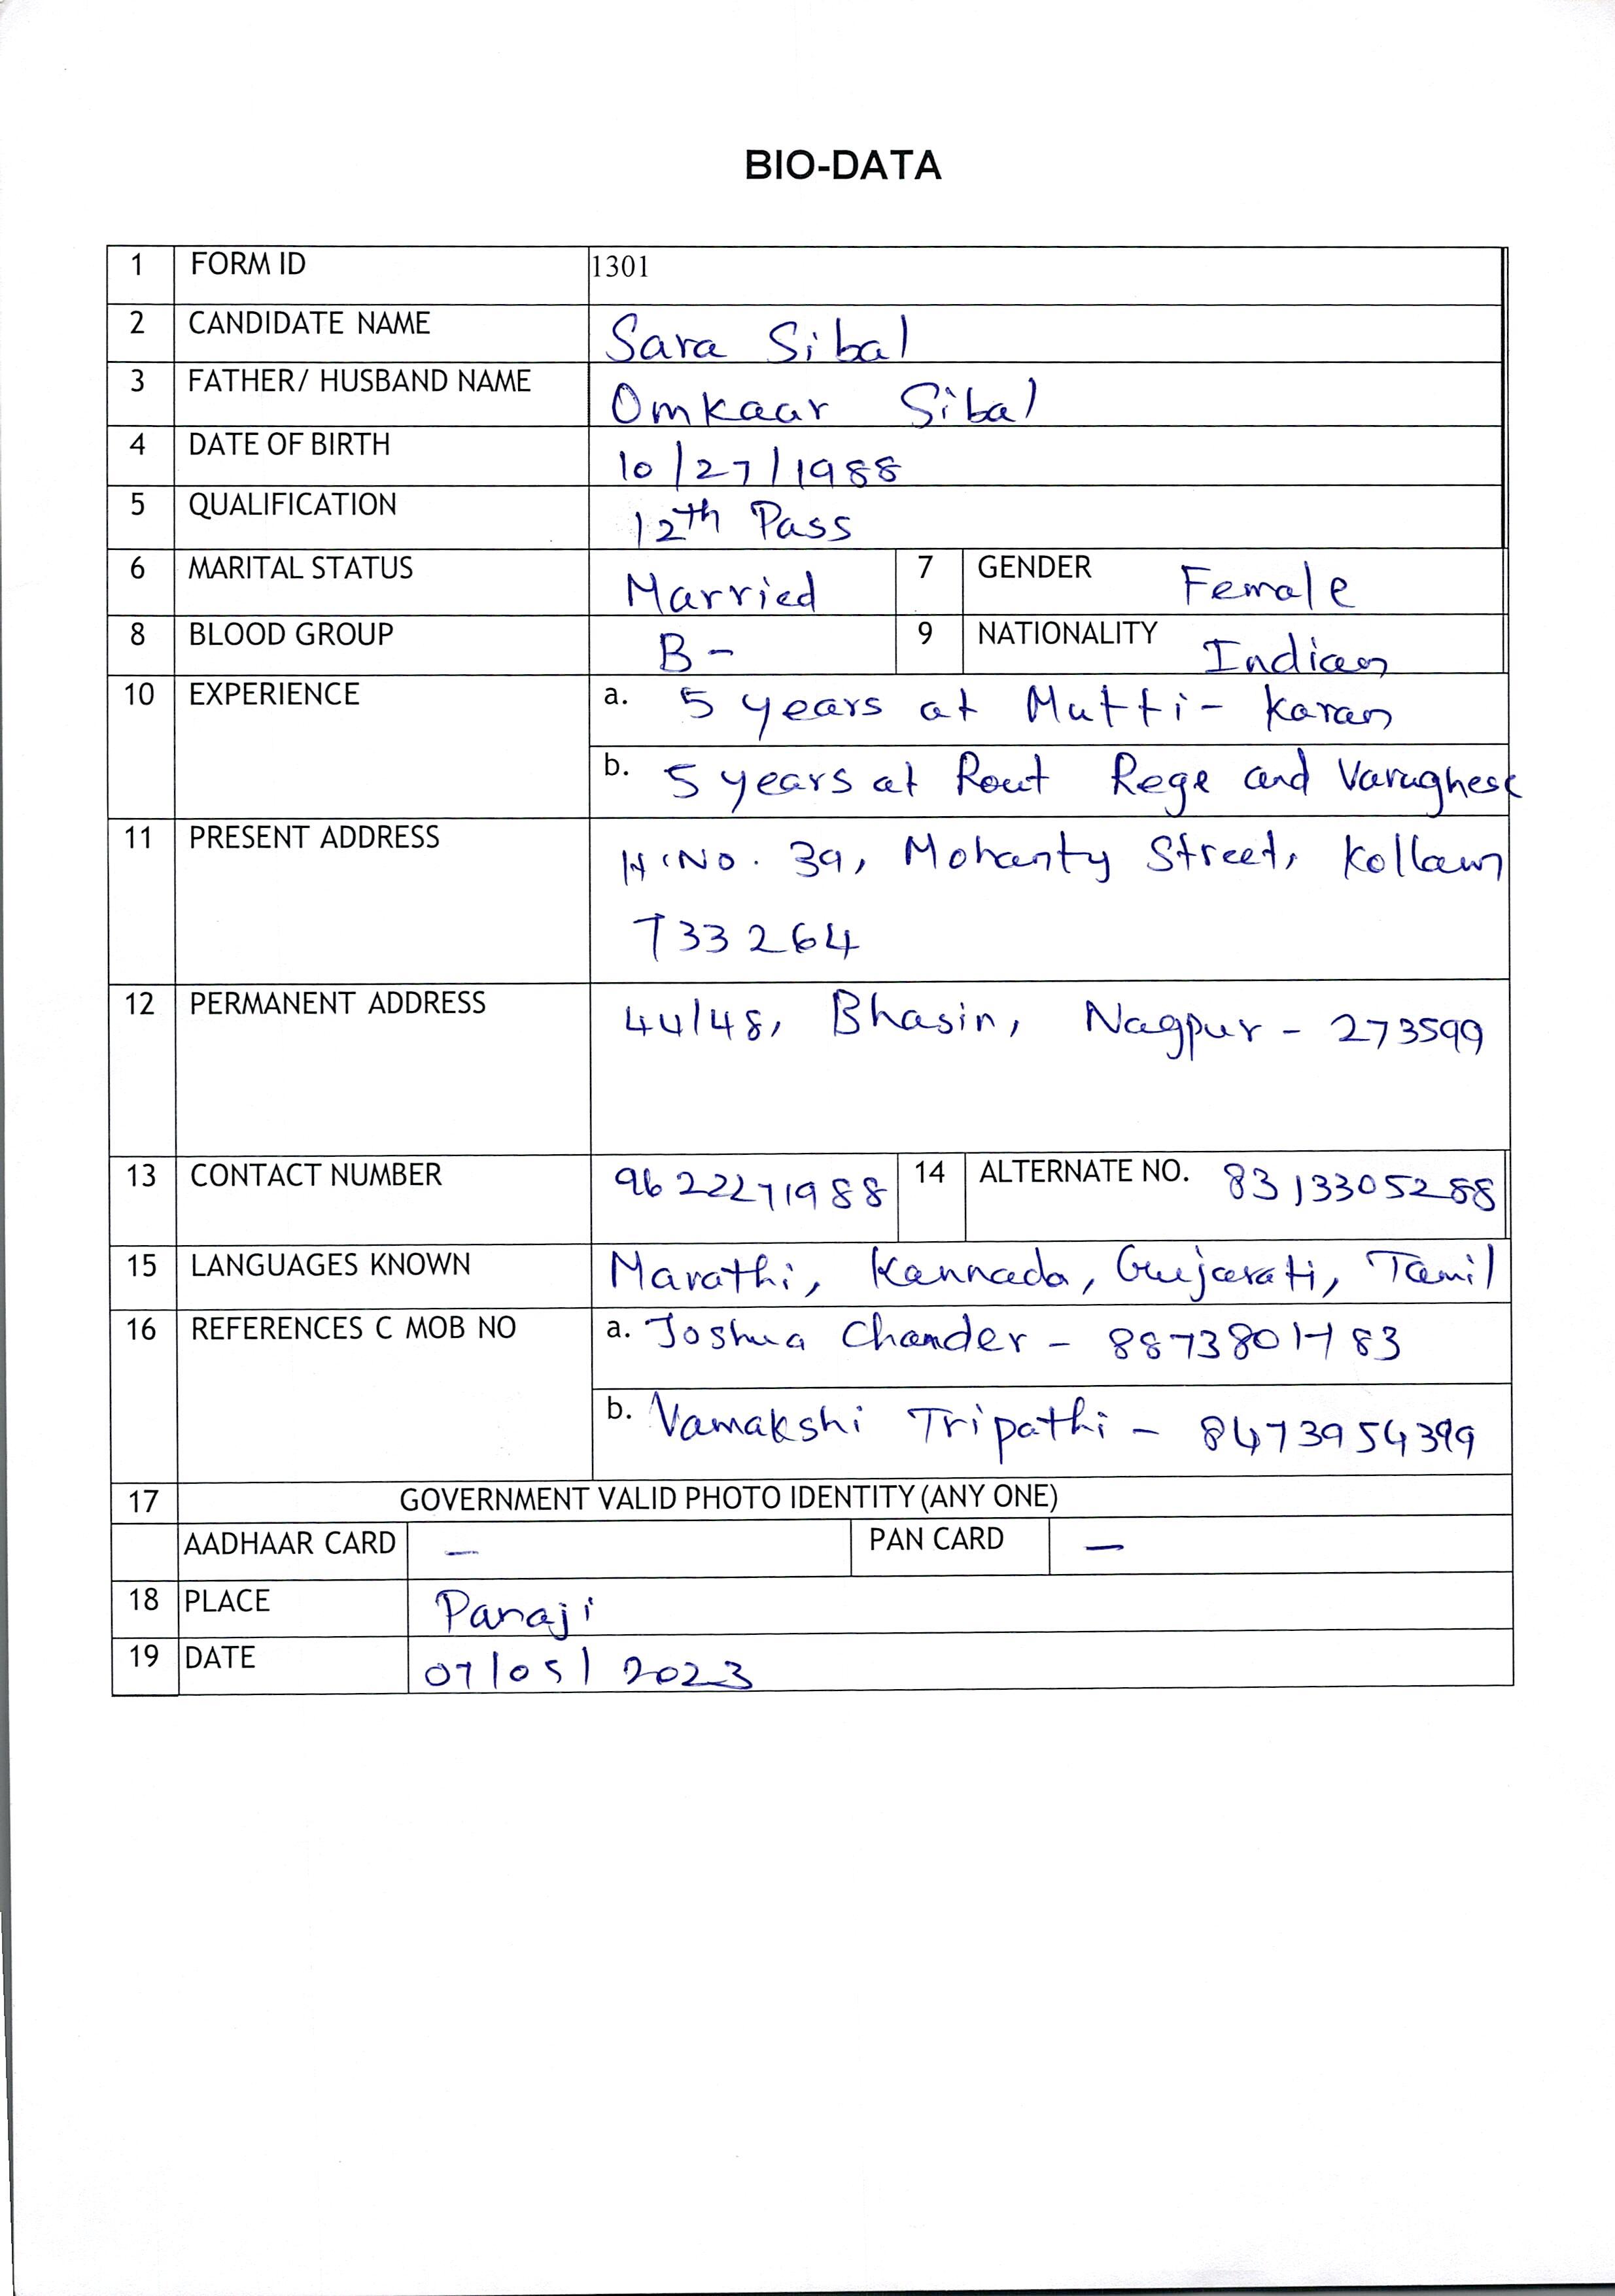 BIO-DATA
1 FORM ID 1301
2 CANDIDATE NAME Sara Sibal
3 FATHER/ HUSBAND NAME Omkaar Sibal
4 DATE OF BIRTH 10/27/1988
5 QUALIFICATION 12th Pass
6 MARITAL STATUS Married 7 GENDER Female
8 BLOOD GROUP B- 9 NATIONALITY Indian
10 EXPERIENCE a. 5 years at Mutti- Karan
b. 5 years at Rout Rege and Varughese
11 PRESENT ADDRESS H.No. 39, Mohanty Street, Kollam
733264
12 PERMANENT ADDRESS 44/48, Bhasin, Nagpur - 273599
13 CONTACT NUMBER 9622271988 14 ALTERNATE NO. 8313305288
15 LANGUAGES KNOWN Marathi, Kannada, Gujarati, Tamil
16 REFERENCES C MOB NO a. Joshua Chander -
b. Vamakshi Tripathi - 8473954399
17 GOVERNMENT VALID PHOTO IDENTITY (ANY ONE)
AADHAAR CARD - PAN CARD -
18 PLACE Panaji
19 DATE 07/05/2023